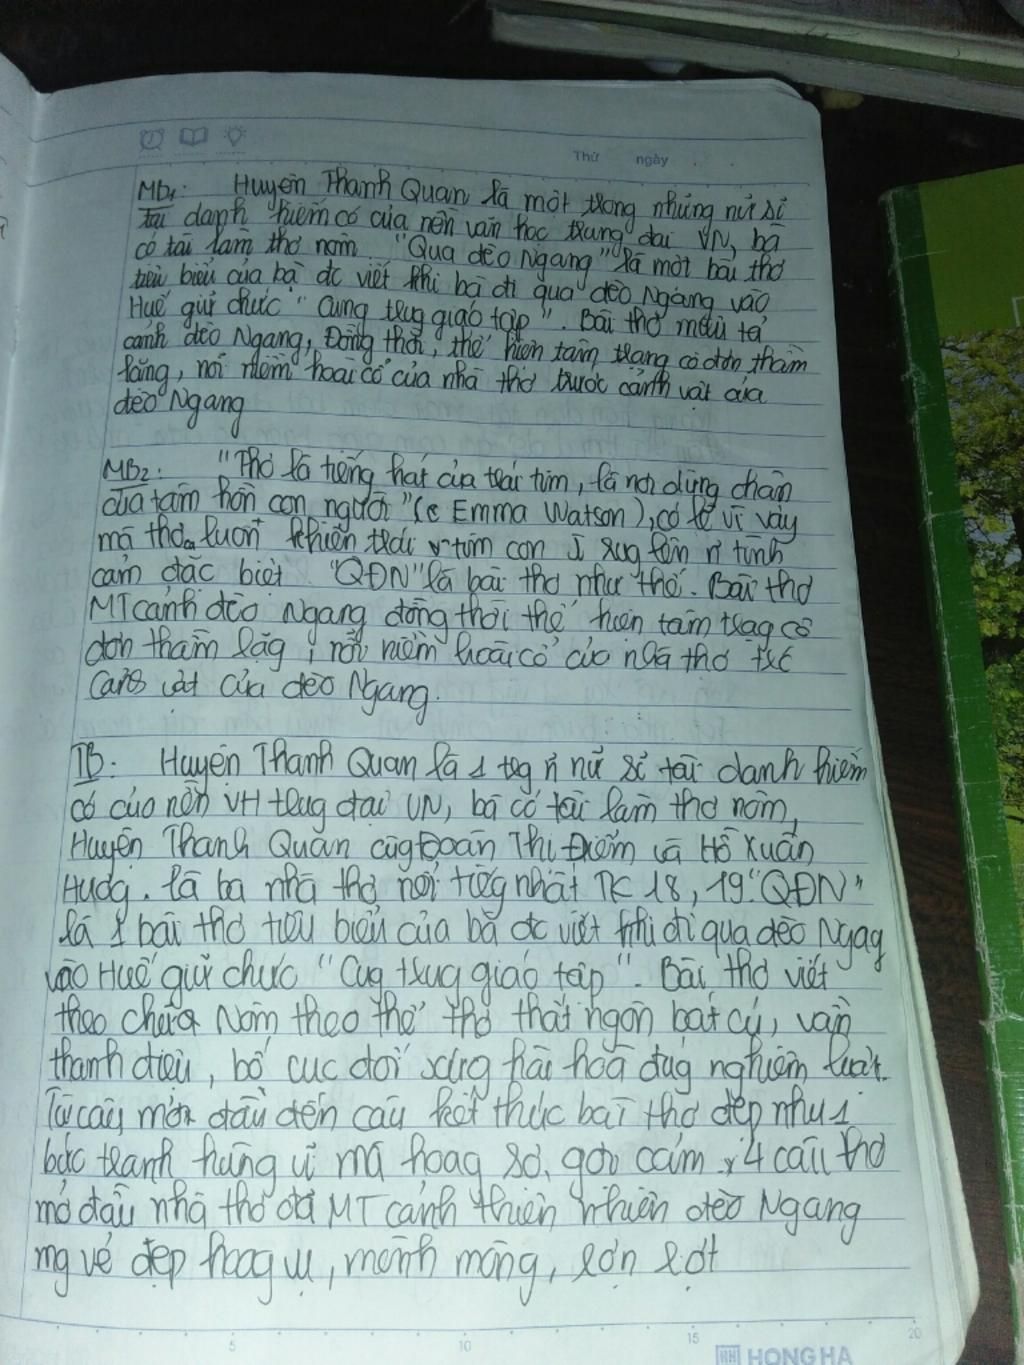 Thứ ngày
MB1: Huyện Thanh Quan là một trong những nữ sĩ
tài danh hiếm có của nền văn học trung đại VN, bà
có tài làm thơ nôm "Qua đèo Ngang" là một bài thơ
tiêu biểu của bà đc viết khi bà đi qua đèo Ngang vào
Huế giữ chức "Cung trug giáo tập". Bài thơ miêu tả
cảnh đèo Ngang, Đồng thời, thể hiện tâm trạng cô đơn thầm
lặng, nỗi niềm hoài cổ của nhà thơ trước cảnh vật của
đèo Ngang
MB2: "Thơ là tiếng hát của trái tim, là nơi dừng chân
của tâm hồn con người" (Emma Watson), có lẽ vì vậy
mà thơ luôn khiến trái tim con rug lên n~ tình
cảm đặc biệt. "QĐN" là bài thơ như thế. Bài thơ
MT cảnh đèo Ngang đồng thời thể hiện tâm trạg cô
đơn thầm lặg, nỗi niềm hoài cổ của nhà thơ
cảnh vật của đèo Ngang.
TB: Huyện Thanh Quan là 1 trg n~ nữ sĩ tài danh hiếm
có của nền VH trug đại VN, bà có tài làm thơ nôm,
Huyện Thanh Quan cùg Đoàn Thị Điểm và Hồ Xuân
Hươg. là ba nhà thơ nổi tiếg nhất TK 18, 19. "QĐN"
là 1 bài thơ tiêu biểu của bà đc viết khi đi qua đèo Ngag
vào Huế giữ chức "Cug trug giáo tập". Bài thơ viết
theo chữ Nôm theo thể thơ thất ngôn bát cú, vần
thanh điệu, bố cục đối xứng hài hoà đúg nghiêm luật.
Từ câu mở đầu đến câu kết thúc bài thơ đẹp như 1
bức tranh hùng vĩ mà hoag sơ, gợi cảm. 4 câu thơ
mở đầu nhà thơ đã MT cảnh thiên nhiên đèo Ngang
mg vẻ đẹp hoag vu, mênh mông, rợn rợt
5 10 15 20
HH HONG HA